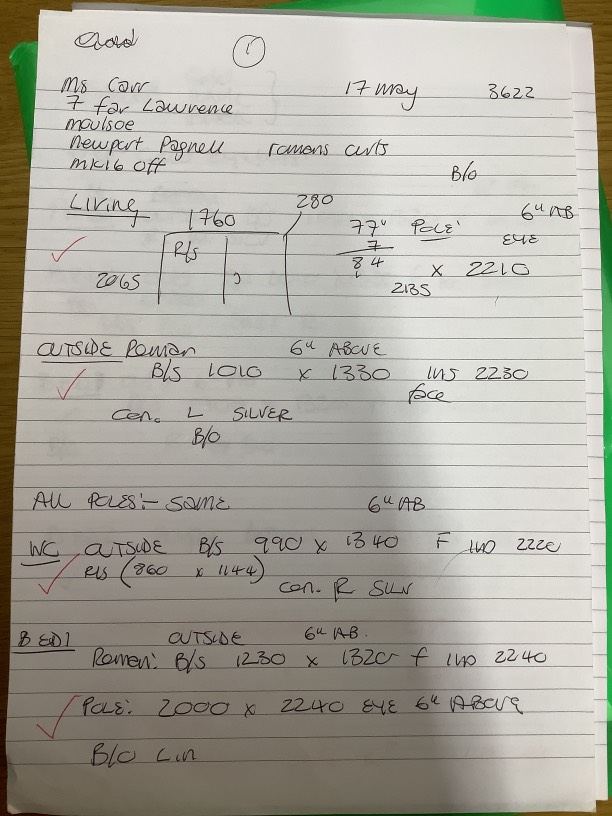 ①
Ms Carr 17 May 3622
7 far Lawrence
Moulsoe
Newport Pagnell romans curts
MK16 0ff
B/O
Living 1760 280 77" Pole: 6" AB
7 EYE
R/S 84 x 2210
2065 2135
OUTSIDE Roman 6" ABOVE
B/S 1010 x 1330 INS 2230
face
Con. L SILVER
B/O
All Poles:- SAME 6" AB
WC OUTSIDE B/S 990 x 1340 F IND 2220
R/S (860 x 1144)
Con. R SILV
BED1 OUTSIDE 6" AB.
Roman: B/S 1230 x 1320 f IND 2240
Pole: 2000 x 2240 EYE 6" ABOVE
B/O Lin